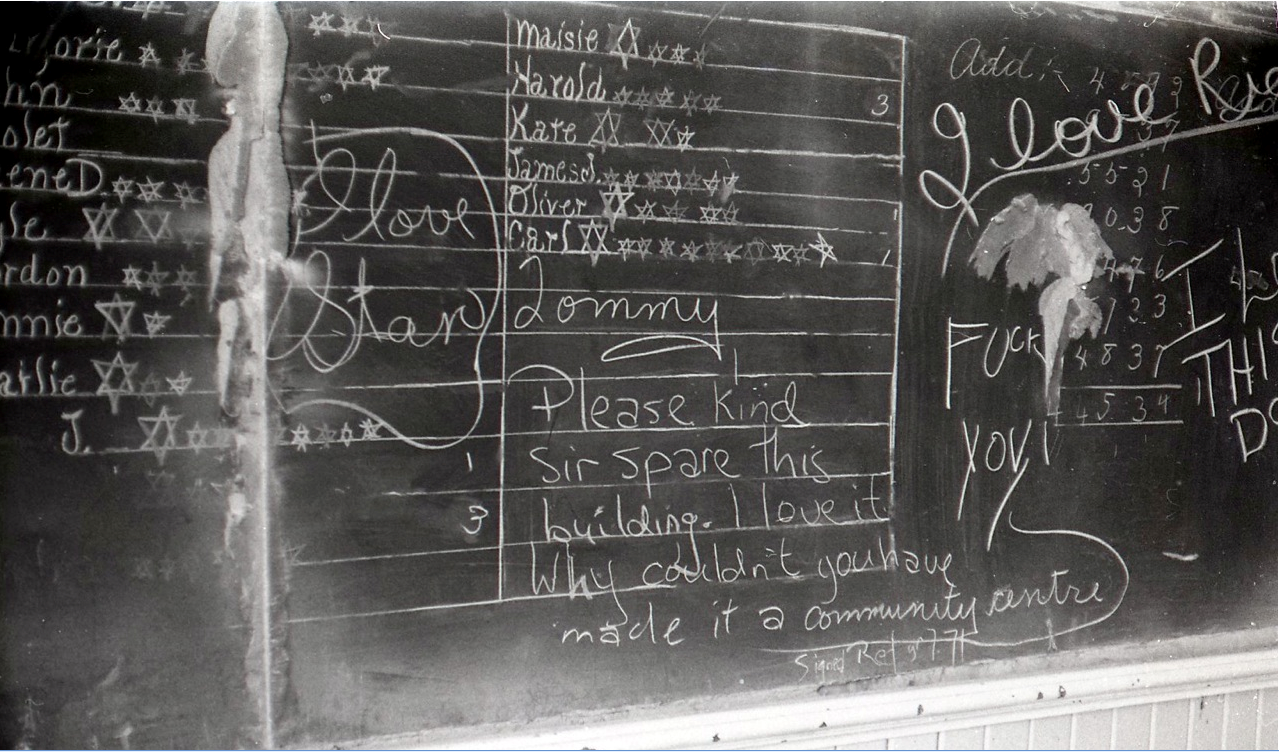 orie
hn
olet
eneD
le
rdon
nnie
arlie
J.
1
3
I love
Stan
maisie
Harold 3
Kate
James J.
Oliver
Carl 1
Tommy
Please kind
Sir spare this
building. I love it
Why couldn't you have
made it a community centre
Signed
Add:-
I love
5521
8
476
4837
4534
FUCK
YOU!
I
THIS